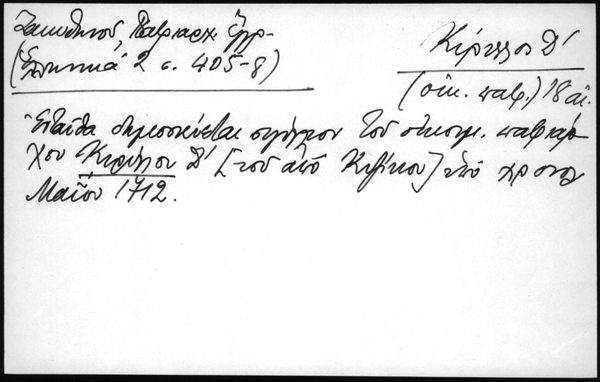 Ζακυθηνοῦ, Πατριαρχ. Ἔγγρ.
(Ἑλληνικά 2 σ. 405-8)
Κύριλλος Δ'
(οἰκ. πατρ.) 18 αἰ.
Ἐνταῦθα δημοσιεύεται σιγίλλιον τοῦ οἰκουμ. πατριάρ-
χου Κυρίλλου Δ' [τοῦ ἀπό Κυζίκου] ὑπό χρονολ.
Μαΐου 1712.